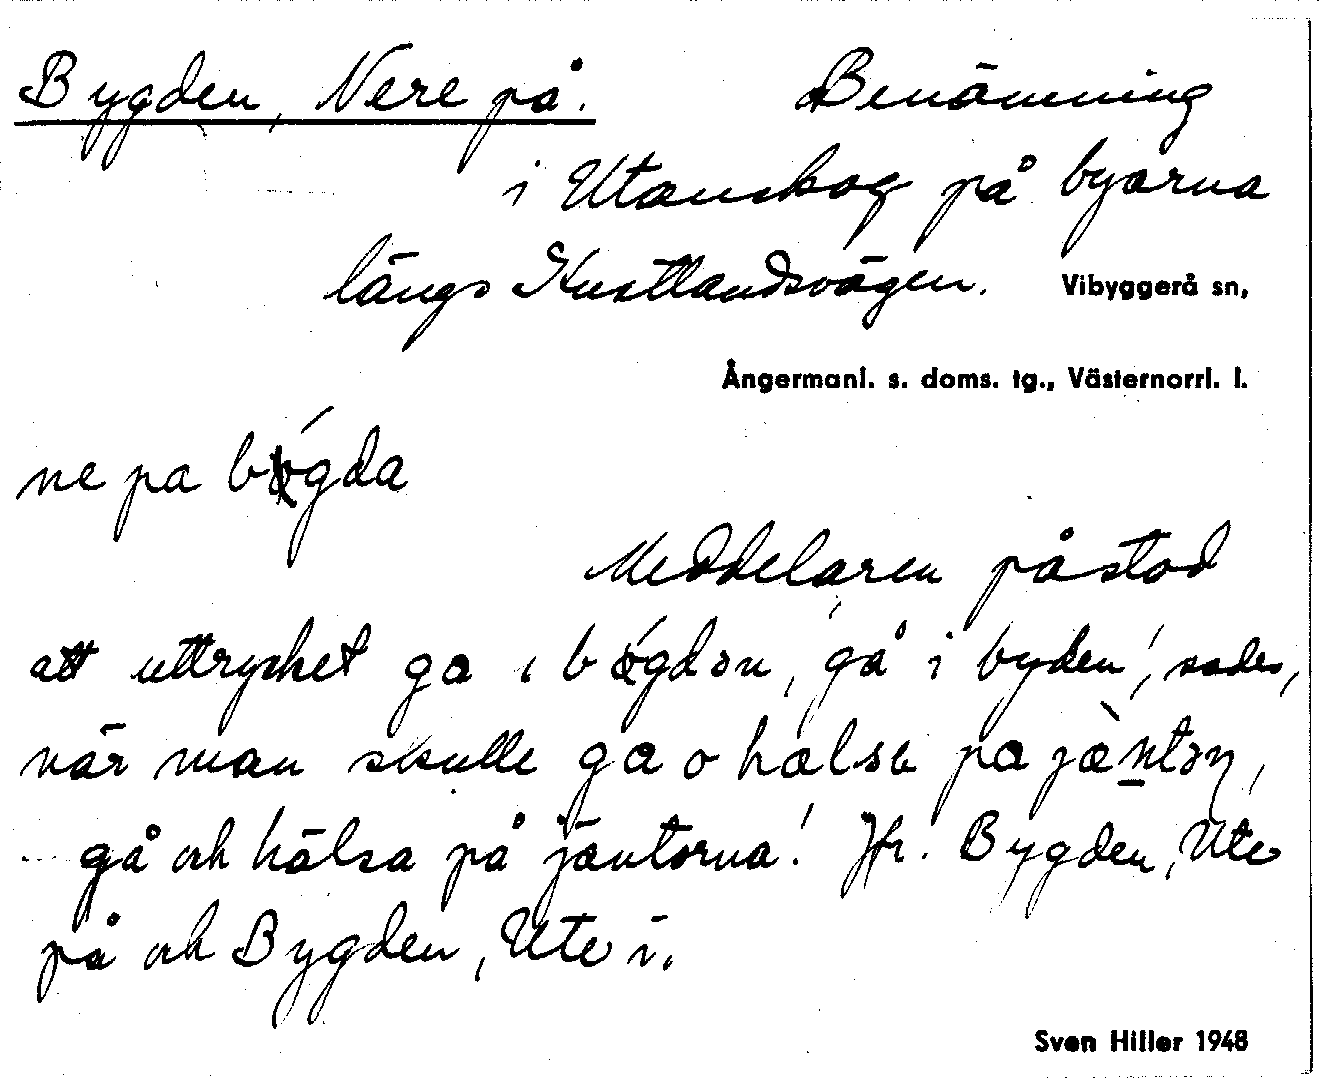 Bygden, Nere på. Benämning
i Utanskog på byarna
längs Kustlandsvägen. Vibyggerå sn,
Ångermanl. s. doms. tg., Västernorrl. l.
ne pa bǿgda
Meddelaren påstod
att uttrycket ga ı bǿgdən, 'gå i byden', sades,
när man skulle ga o hælsa pa jæ̀ntəɳ,
gå och hälsa på jäntorna'. Jfr. Bygden, Ute
på och Bygden, Ute i.
Sven Hiller 1948